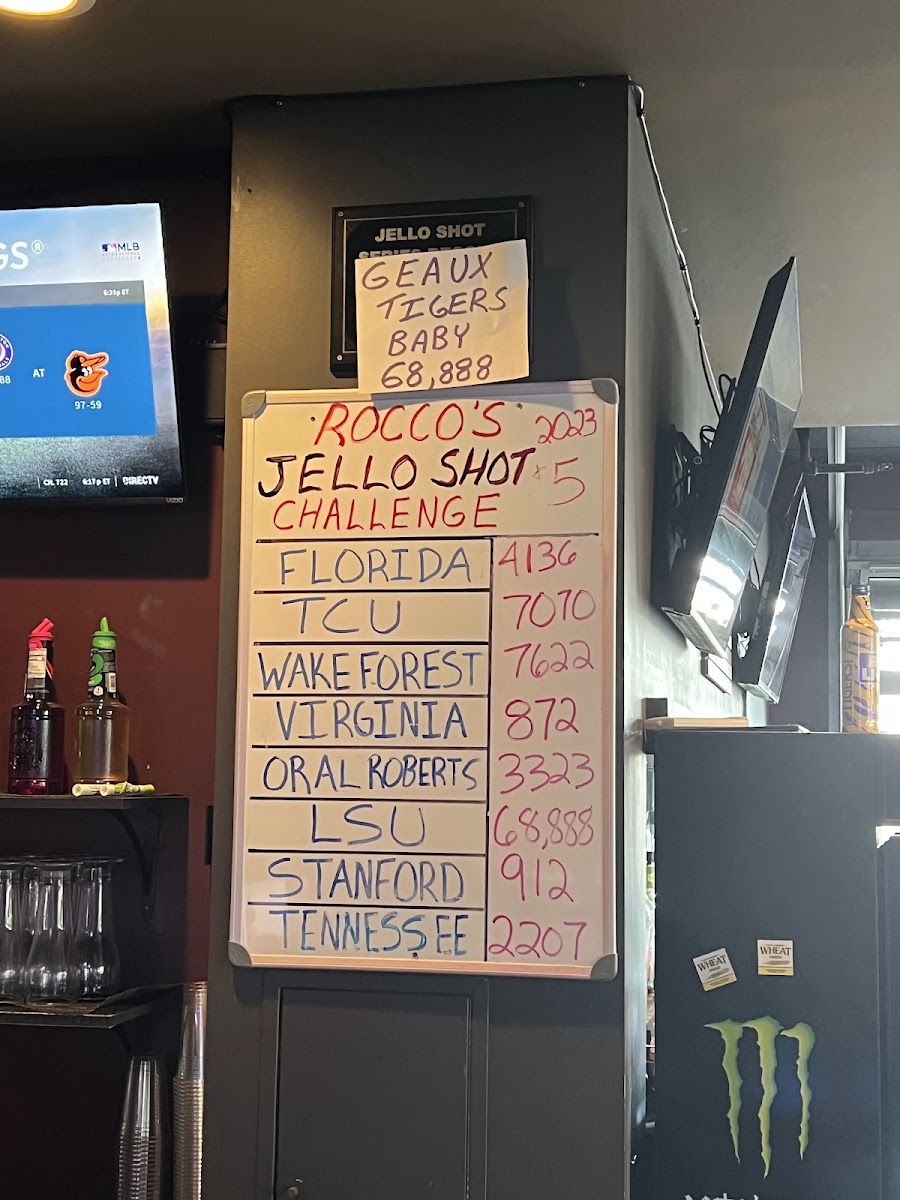 JELLO SHOT
GEAUX
TIGERS
BABY
68,888
ROCCO'S 2023
JELLO SHOT $5
CHALLENGE
FLORIDA 4136
TCU 7070
WAKE FOREST 7622
VIRGINIA 872
ORAL ROBERTS 3323
LSU 68,888
STANFORD 912
TENNESSEE 2207
GS®
MLB
6:35p ET
88 AT
97-59
CH. 722 6:17p ET DIRECTV
VIZIO
TIGERS
WHEAT
WHEAT